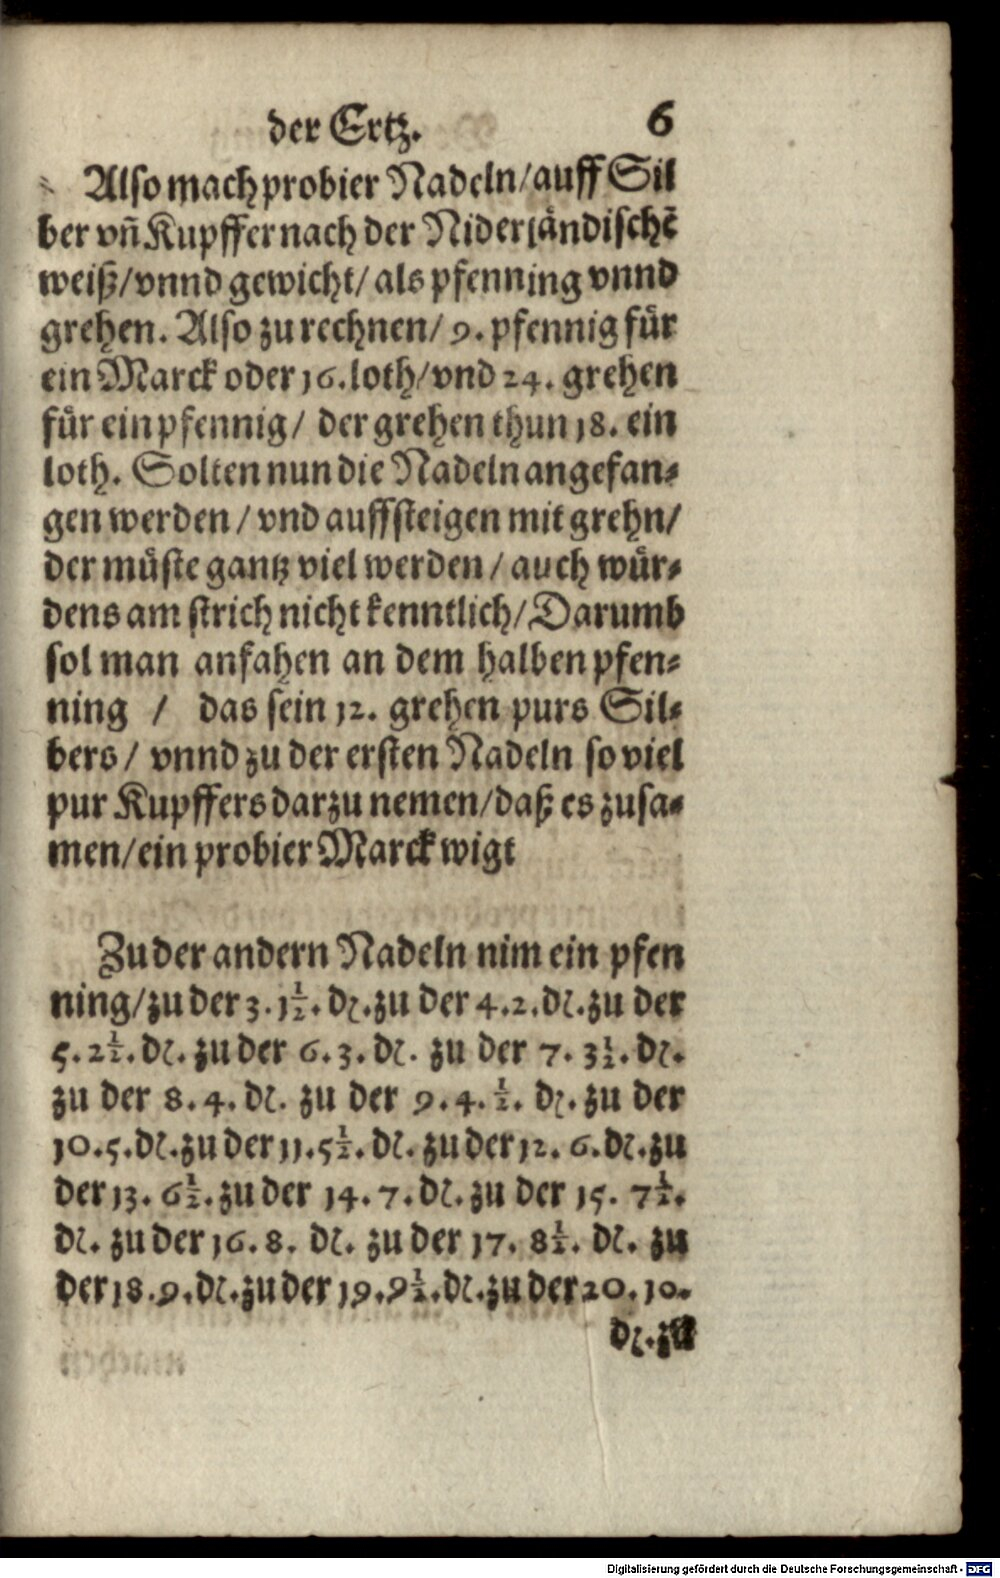 der Ertz. 6
Also mach probier Nadeln/auff Sil
ber vñ Kupffer nach der Niderländischẽ
weiß/vnnd gewicht/ als pfenning vnnd
grehen. Also zu rechnen/ 9. pfennig für
ein Marck oder 16. loth/vnd 24. grehen
für ein pfennig/ der grehen thun 18. ein
loth. Solten nun die Nadeln angefan⸗
gen werden/ vnd auffsteigen mit grehn/
der müste gantz viel werden/ auch wür⸗
dens am strich nicht kenntlich/Darumb
sol man anfahen an dem halben pfen⸗
ning / das sein 12. grehen purs Sil⸗
bers/ vnnd zu der ersten Nadeln so viel
pur Kupffers darzu nemen/daß es zusa⸗
men/ein probier Marck wigt
Zu der andern Nadeln nim ein pfen
ning/zu der 3. 1½. ₰. zu der 4. 2. ₰. zu der
5. 2½. ₰. zu der 6. 3. ₰. zu der 7. 3½. ₰.
zu der 8. 4. ₰. zu der 9. 4. ½. ₰. zu der
10. 5. ₰. zu der 11. 5½. ₰. zu der 12. 6. ₰. zu
der 13. 6½. zu der 14. 7. ₰. zu der 15. 7½.
₰. zu der 16. 8. ₰. zu der 17. 8½. ₰. zu
der 18. 9. ₰. zu der 19. 9½. ₰. zu der 20. 10.
₰. zu
Digitalisierung gefördert durch die Deutsche Forschungsgemeinschaft - DFG